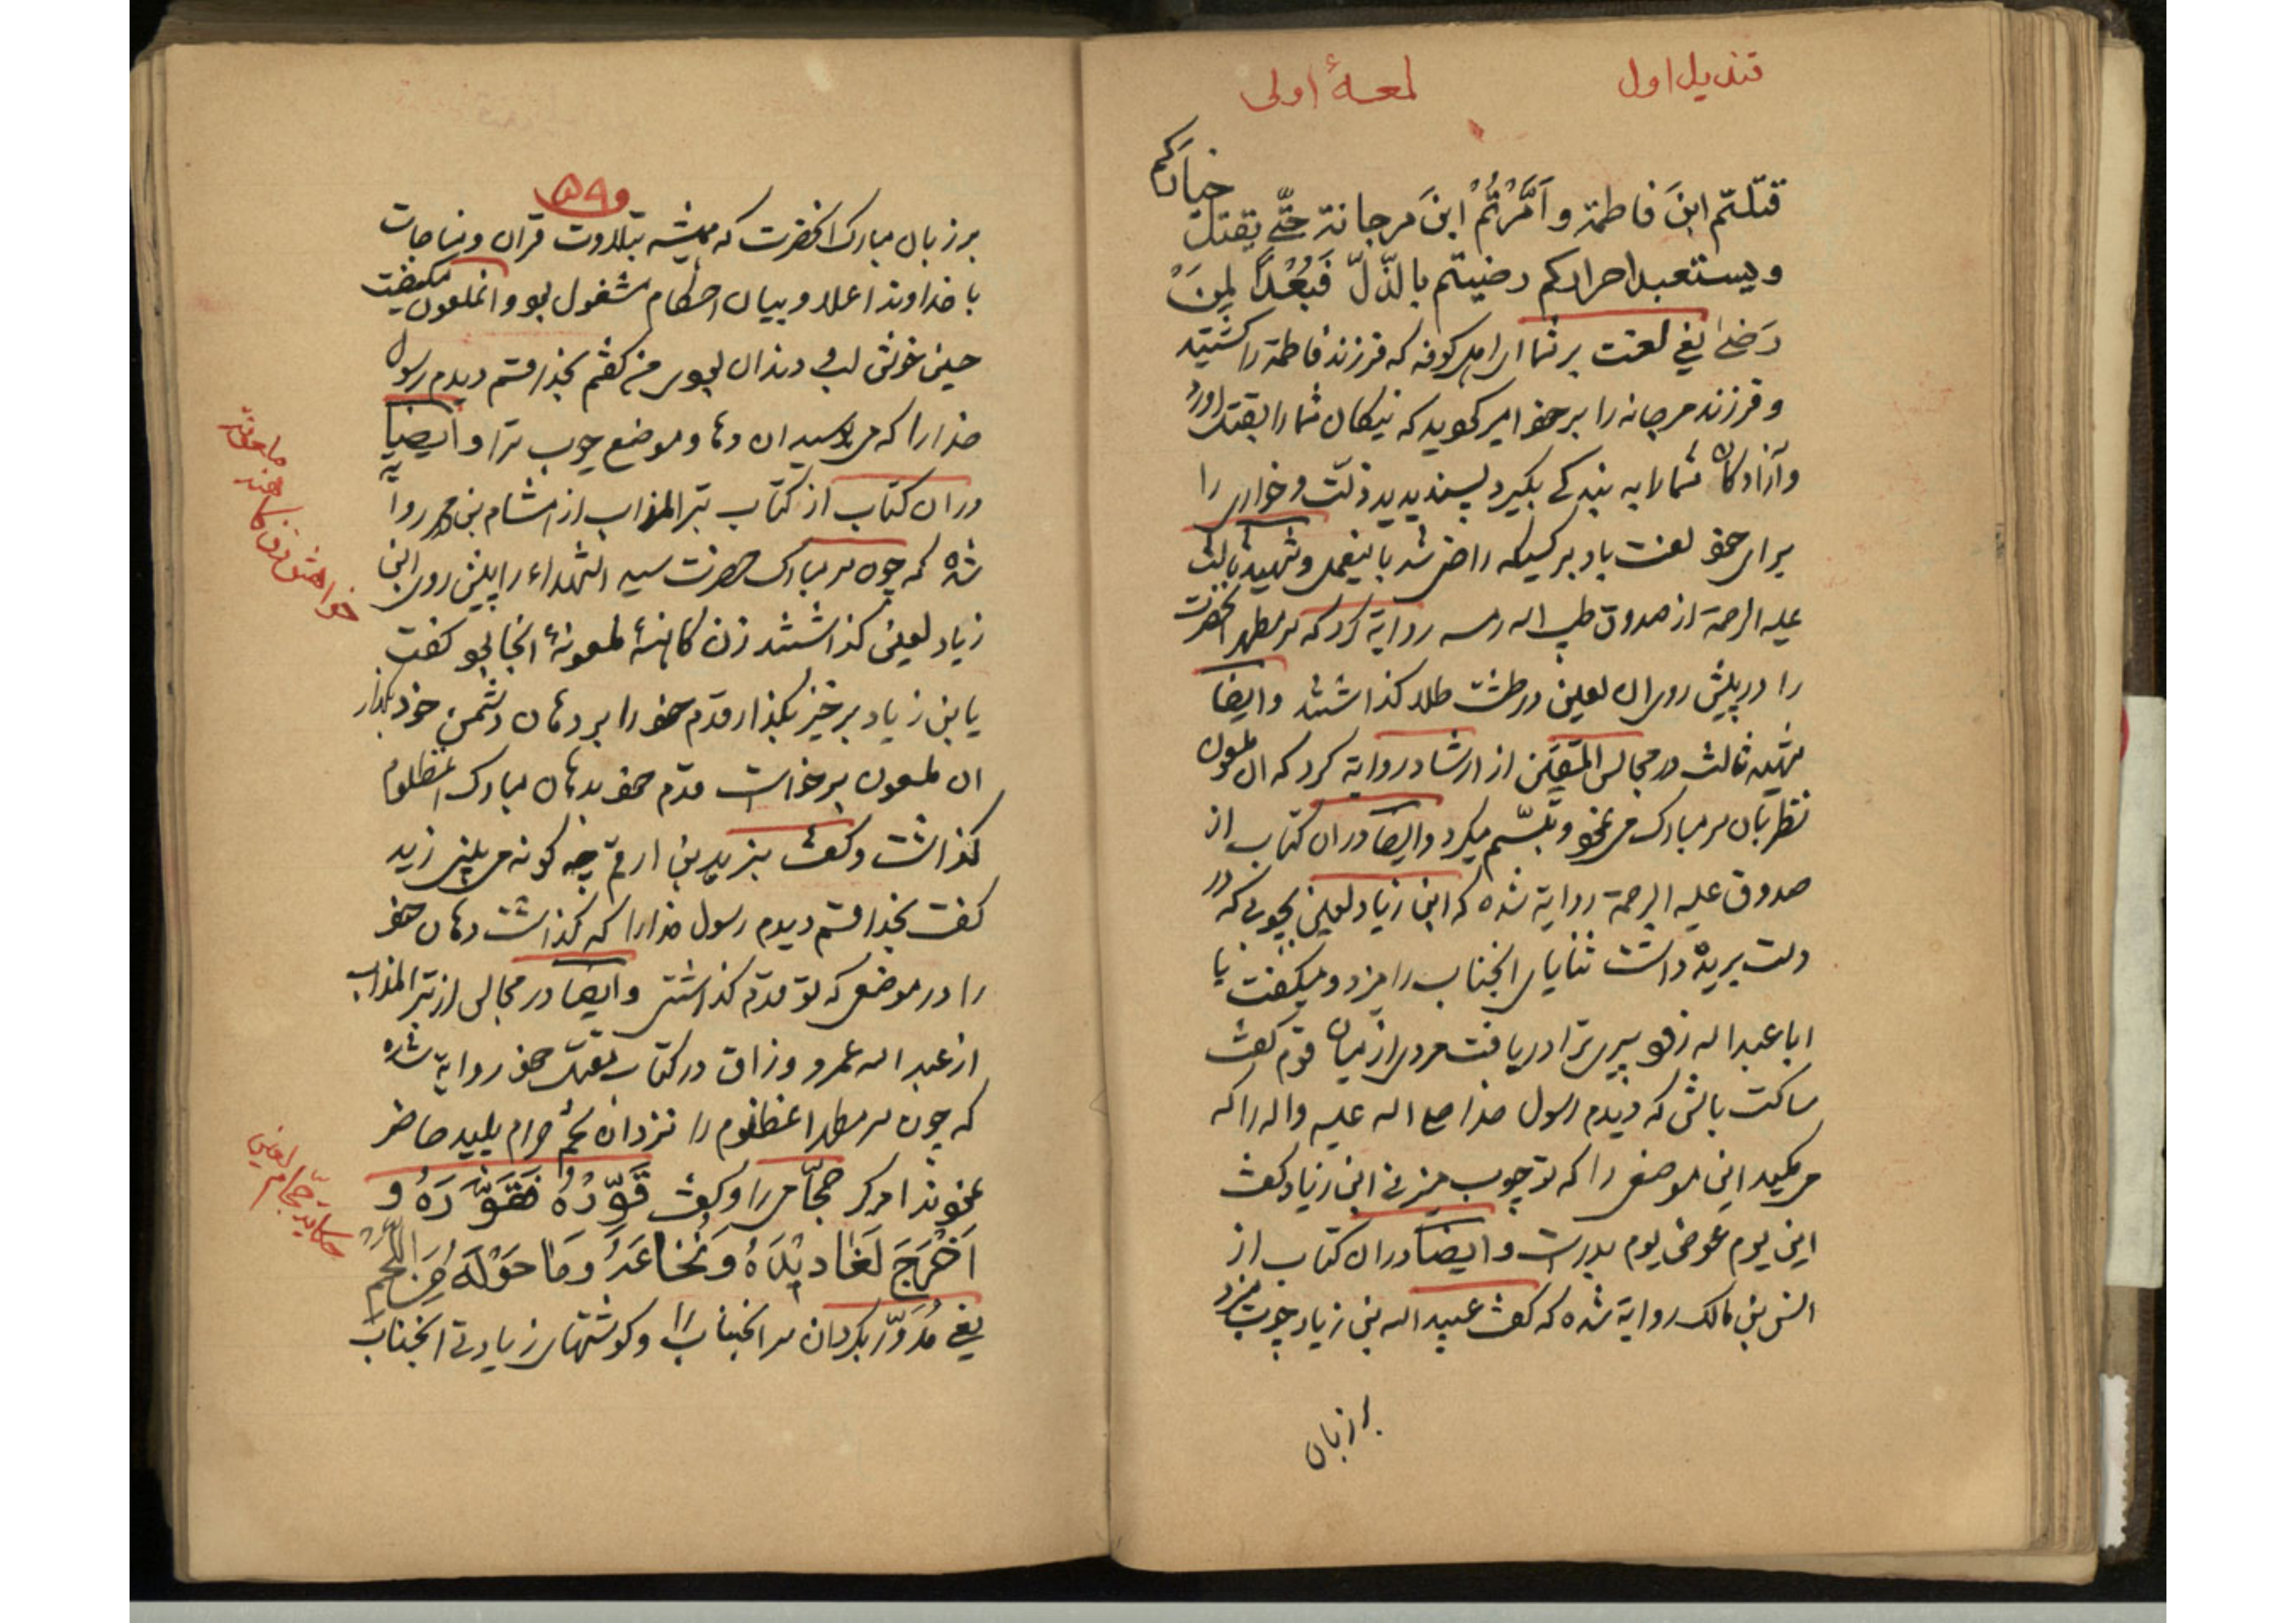 قندیل اول
لمعهٔ اولی
قتلتم ابنَ فاطمة و اَمَّرْتُمُ ابنَ مرجانة حتّی یقتل خیارَکم
و یستعبد احرارکم رضیتم بالذّلّ فَبُعْداً لِمَنْ
رَضِیَ یعنی لعنت بر شما ای اهل کوفه که فرزند فاطمة را کشتید
و فرزند مرجانه را بر خود امیر کردید که نیکان شما را بقتل آورد
و آزادگان شما را به بندگی بگیرد پسندیدید ذلّت و خواری را
برای خود لعنت باد بر کسیکه راضی شد باینعمل و شهید ثالث
علیه الرحمة از صدوق طیب اله رمسه روایة کرد که سر مطهر انحضرت
را در پیش روی ان لعین در طشت طلا گذاشتند و ایضاً
شهید ثالث در مجالس المتقین از ارشاد روایة کرد که ان ملعون
نظر بان سر مبارک می نمود و تبسّم میکرد و ایضاً در ان کتاب از
صدوق علیه الرحمة روایة شده که ابن زیاد لعین بچوبی که در
دست پریده داشت ثنایای انجناب را میزد و میگفت یا
ابا عبد اله زود پیری ترا دریافت مردی از میان قوم گفت
ساکت باش که دیدم رسول خدا صلی اله علیه و اله را که
می مکید این موضعی را که تو چوب میزنی ابن زیاد گفت
این یوم عوض یوم بدرست و ایضاً در ان کتاب از
انس بن مالک روایة شده که گفت عبید اله بن زیاد چوب میزد
بر زبان
۵۹
بر زبان مبارک انحضرت که همیشه بتلاوت قران و مناجات
با خداوند اعلا و بیان احکام مشغول بود و انملعون میگفت
حسین خوش لب و دندان بودی من گفتم بخدا قسم دیدم رسول
خدا را که می بوسید ان دهان و موضع چوب ترا و ایضاً
در ان کتاب از کتاب تبر المذاب از هشام بن محمد روایة
شده که چون سر مبارک حضرت سید الشهداء را پیش روی ابن
زیاد لعین گذاشتند زن کاهنهٔ ملعونهٔ انجا بود گفت
یابن زیاد برخیز بگذار قدم خود را بر دهان دشمن خود بگذار
ان ملعون برخواست قدم خود بدهان مبارک انمظلوم
گذاشت و گفت بزید بن ارقم چه گونه می بینی زید
گفت بخدا قسم دیدم رسول خدا را که گذاشت دهان خود
را در موضعی که تو قدم گذاشتی و ایضاً در مجالس از تبر المذاب
از عبد اله عمرو وراق در کتاب مقتل خود روایة شده
که چون سر مطهر انمظلوم را نزد ان تخم حرام پلید حاضر
نمودند امر کرد حجّامی را و گفت قَوِّرْهُ فَقَوَّرَهُ وَ
اَخْرَجَ لَغَادِیدَهُ وَ نُخَاعَهُ وَ مَا حَوْلَهُ مِنَ اللَّحْمِ
یعنی مُدَوَّر بگردان سر انجناب را و گوشتهای زیادتی انجناب
حکایت حجام لعین